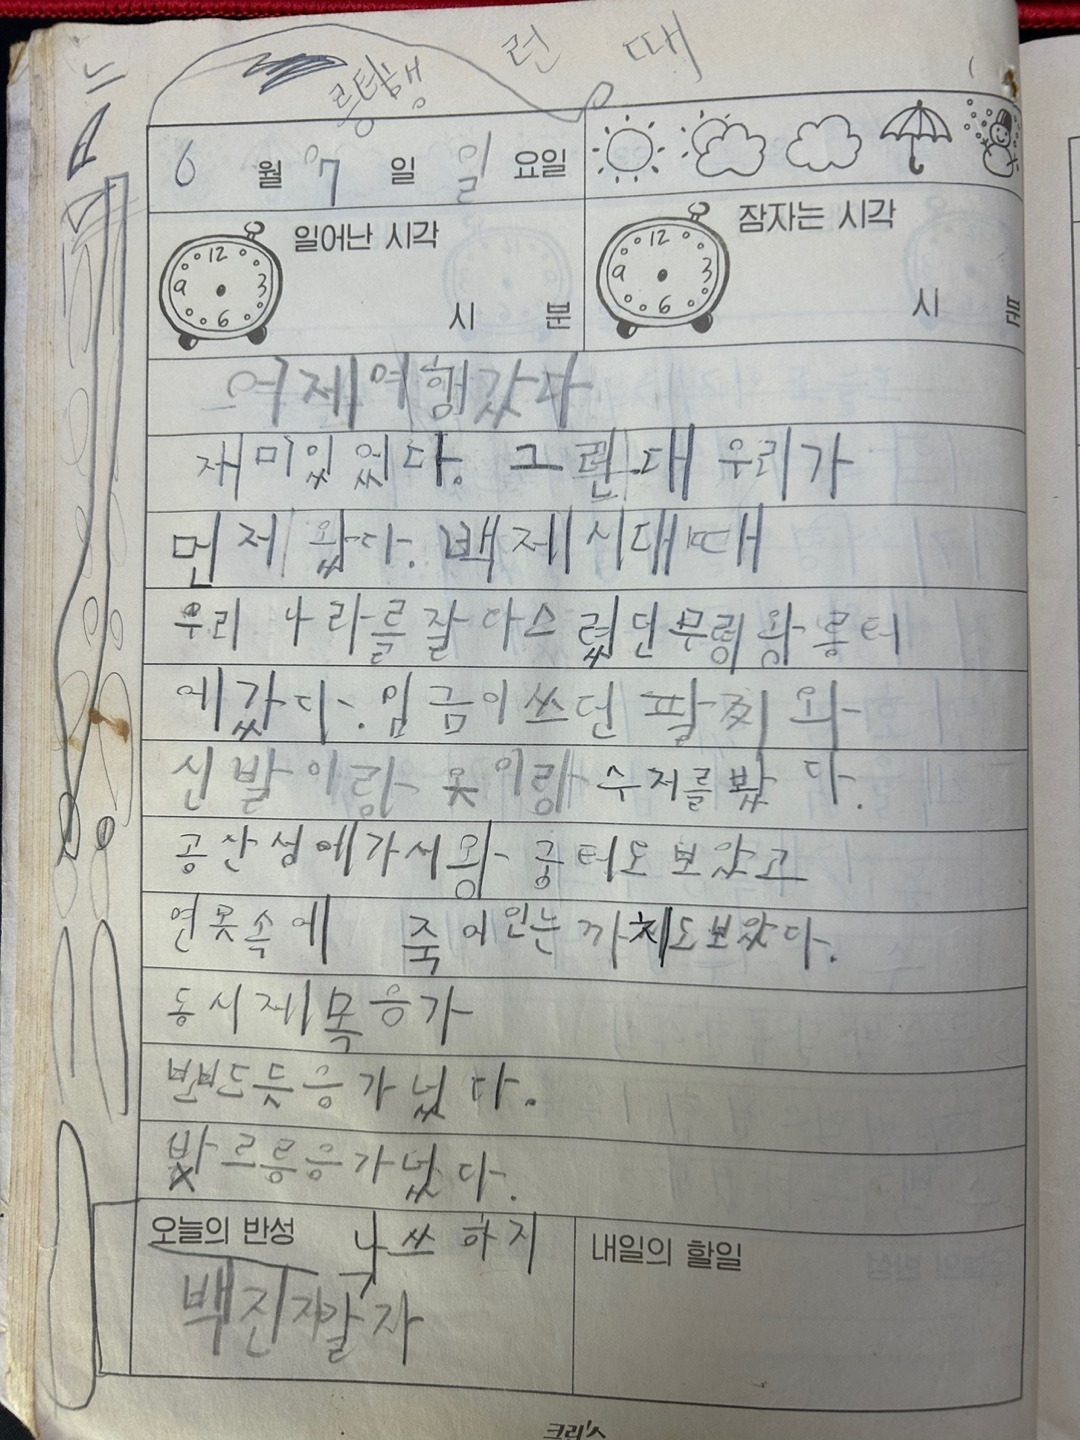 런 때
6 월 7 일 일 요일
일어난 시각
12 3 6 9
시 분
잠자는 시각
12 3 6 9
시 분
어제 여행갔다
재미있었다. 그런대 우리가
먼저 왔다. 백제시대때
우리 나라를 잘 다스렸던 무령왕릉터
에 갔다. 임금이 쓰던 팔찌 와
신발이랑 옷이랑 수저를 봤다.
공산성에 가서 왕 궁터도 보았고
연못속에 죽어인는 까치도 보았다.
동시제목 응가
번쩍 응가넜다.
르릉응가넜다.
오늘의 반성
하지
자
내일의 할일
크리스